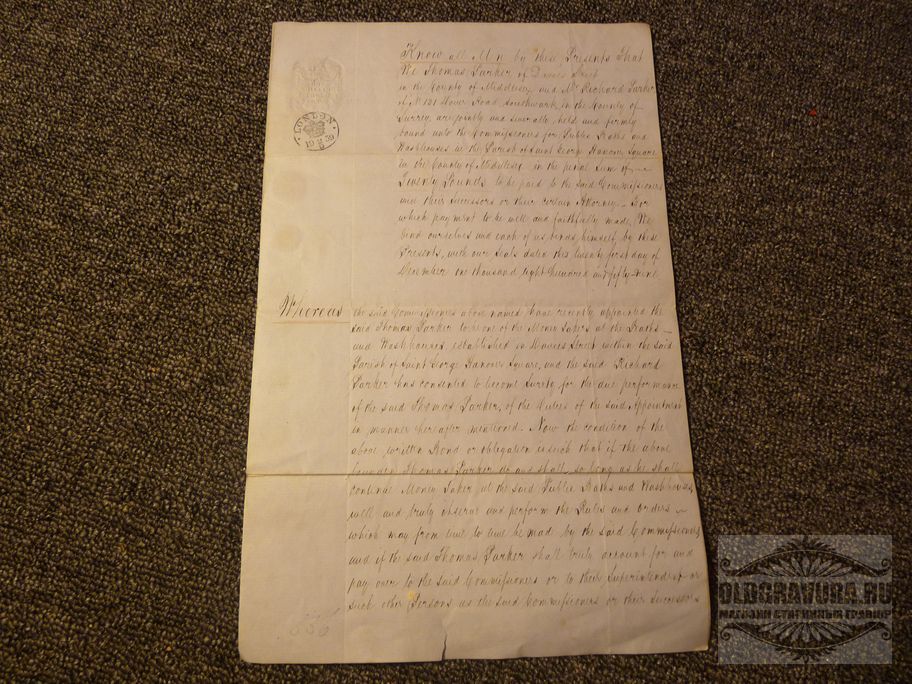 LONDON
Know all Men by these Presents That
We Thomas Parker of Davies Street
in the County of Middlesex and Mr Richard Parker
of No 131 Dover Road, Southwark, in the County of
Surrey, are jointly and severally held and firmly
bound unto the Commissioners for Public Baths and
Washhouses in the Parish of Saint George Hanover Square
in the County of Middlesex in the penal Sum of
Twenty Pounds to be paid to the said Commissioners
and their Successors or their certain Attorney – For
which payment to be well and faithfully made, We
bind ourselves and each of us, binds himself, by these
Presents, with our Seals dated this twenty first day of
December one thousand eight hundred and fifty-nine
Whereas the said Commissioners above named have recently appointed the
said Thomas Parker to be one of the Money Takers at the Baths –
and Washhouses, established in Davies Street within the said
Parish of Saint George Hanover Square, and the said Richard
Parker has consented to become Surety for the due performance
of the said Thomas Parker, of the Duties of the said Appointment
in manner hereafter mentioned. Now the condition of the
above written Bond or obligation is such that if the above
bounden Thomas Parker do and shall, so long as he shall
continue Money Taker at the said Public Baths and Washhouses,
well and truly observe and perform the Rules and orders –
which may from time to time be made by the said Commissioners
and if the said Thomas Parker shall truly account for and
pay over to the said Commissioners or to their Superintendent or
such other Persons as the said Commissioners or their Successors
OLDGRAVURA.RU
МАГАЗИН СТАРИННЫХ ГРАВЮР